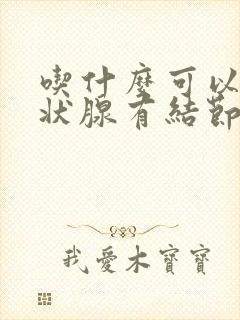 喫什麼可以
狀腺有結節
我愛木寶寶